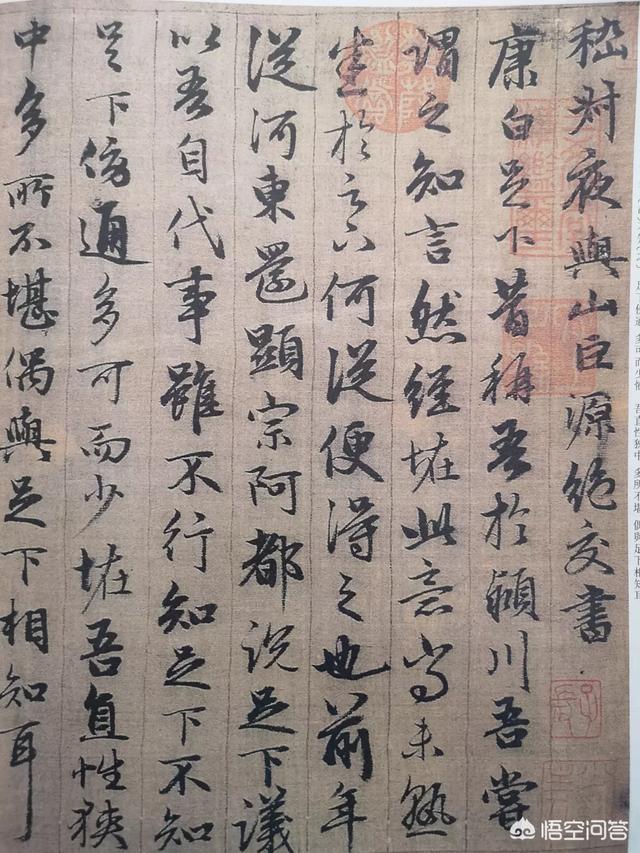 嵇叔夜與山巨源絕交書
康白足下昔稱吾於潁川吾嘗
謂之知言然經怪此意尚未熟
悉於足下何從便得之也前年
從河東還顯宗阿都說足下議
以吾自代事雖不行知足下不知
足下傍通多可而少怪吾直性狹
中多所不堪偶與足下相知耳
悟空问答